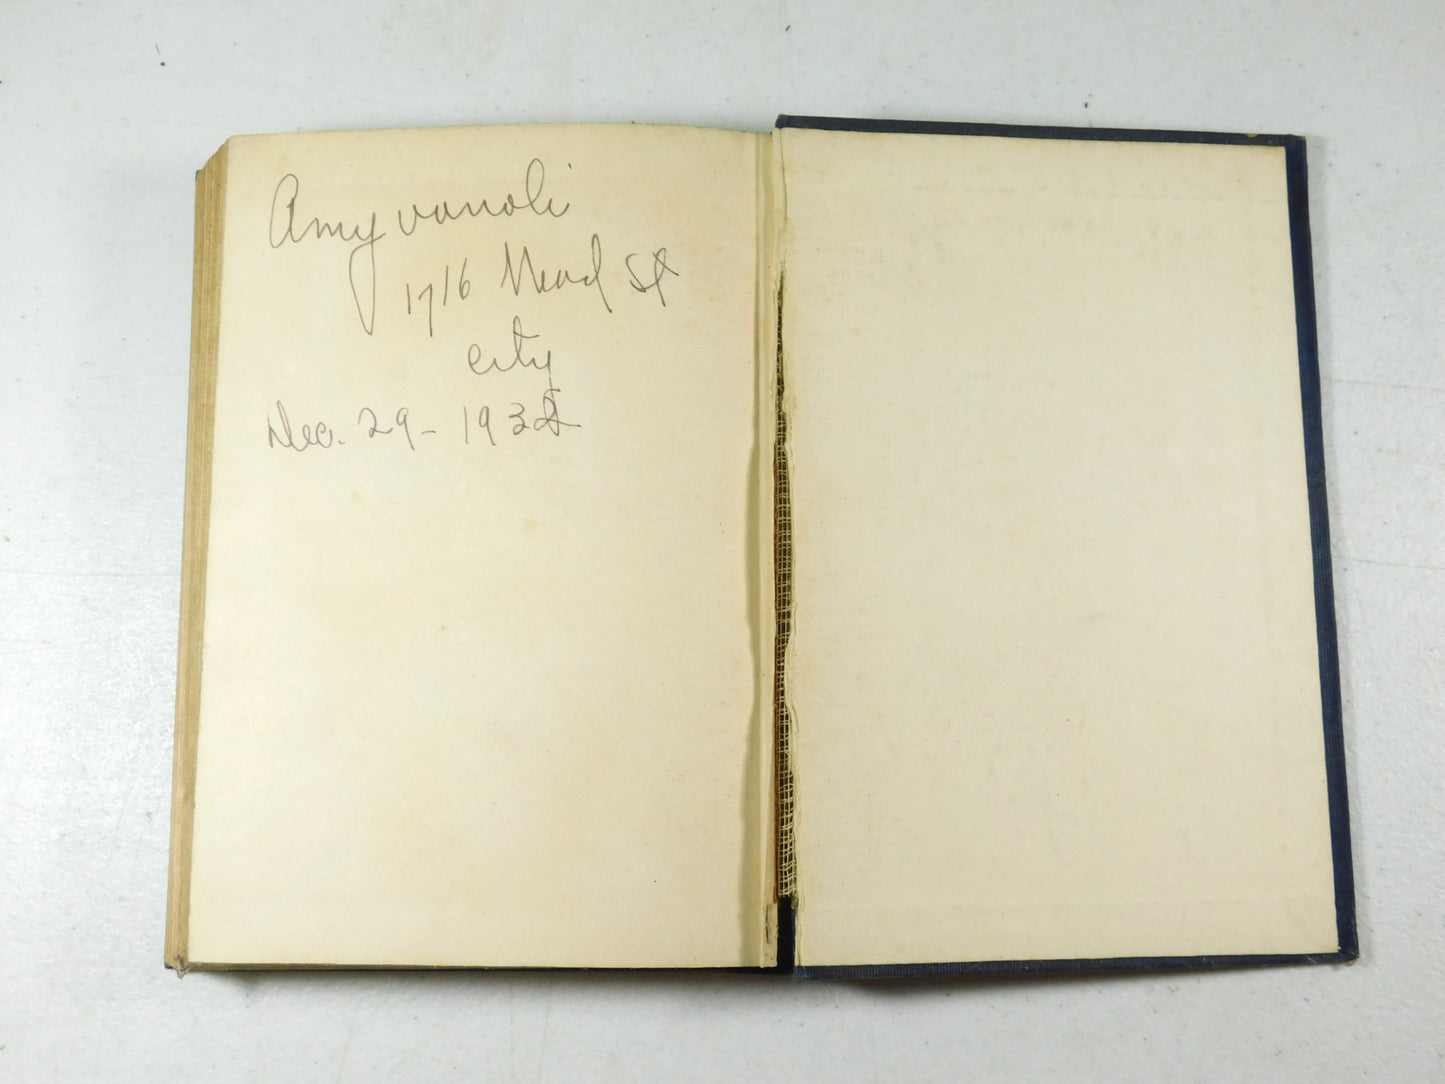 Amy vanoli
1716 Mead St
City
Dec. 29 - 1932